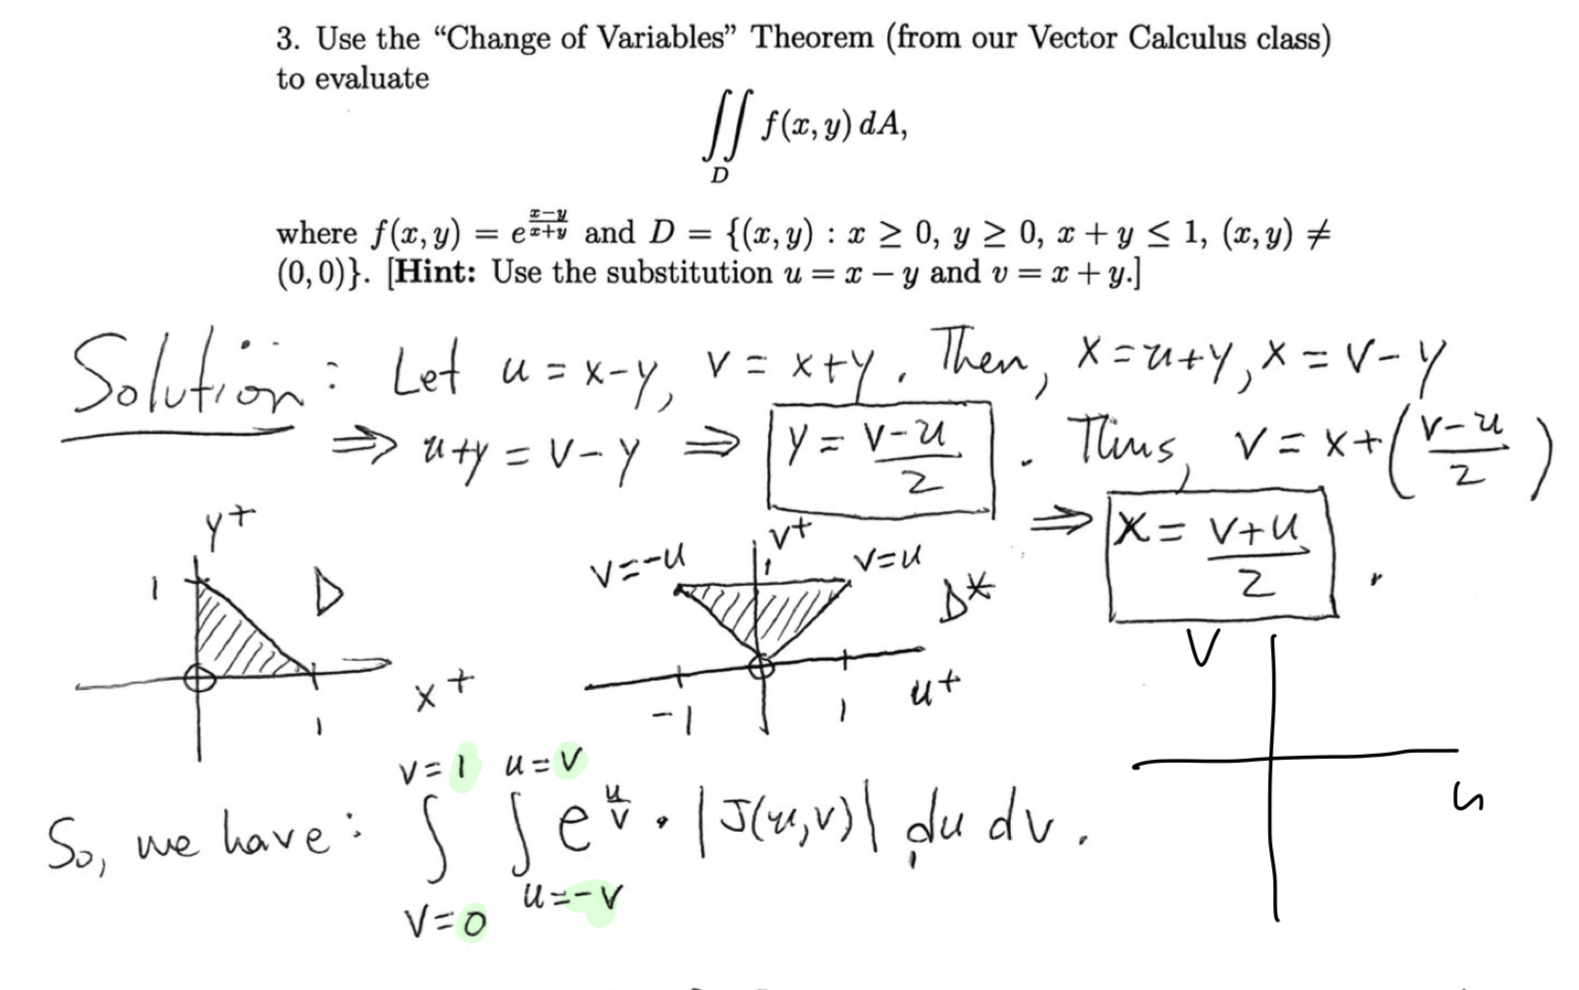 3. Use the “Change of Variables” Theorem (from our Vector Calculus class)
to evaluate
∬_D f(x, y) dA,
where f(x, y) = e^{\frac{x-y}{x+y}} and D = {(x, y) : x ≥ 0, y ≥ 0, x + y ≤ 1, (x, y) ≠
(0, 0)}. [Hint: Use the substitution u = x − y and v = x + y.]
Solution: Let u = x-y, v = x+y. Then, x = u+y, x = v-y
⇒ u+y = v-y ⇒ y = \frac{v-u}{2}. Thus, v = x+(\frac{v-u}{2})
⇒ x = \frac{v+u}{2}.
y+
1
D
x+
1
v=-u
v+
1
v=u
D*
-1
1
u+
V
u
So, we have: ∫_{v=0}^{v=1} ∫_{u=-v}^{u=v} e^{\frac{u}{v}} · |J(u,v)| du dv.